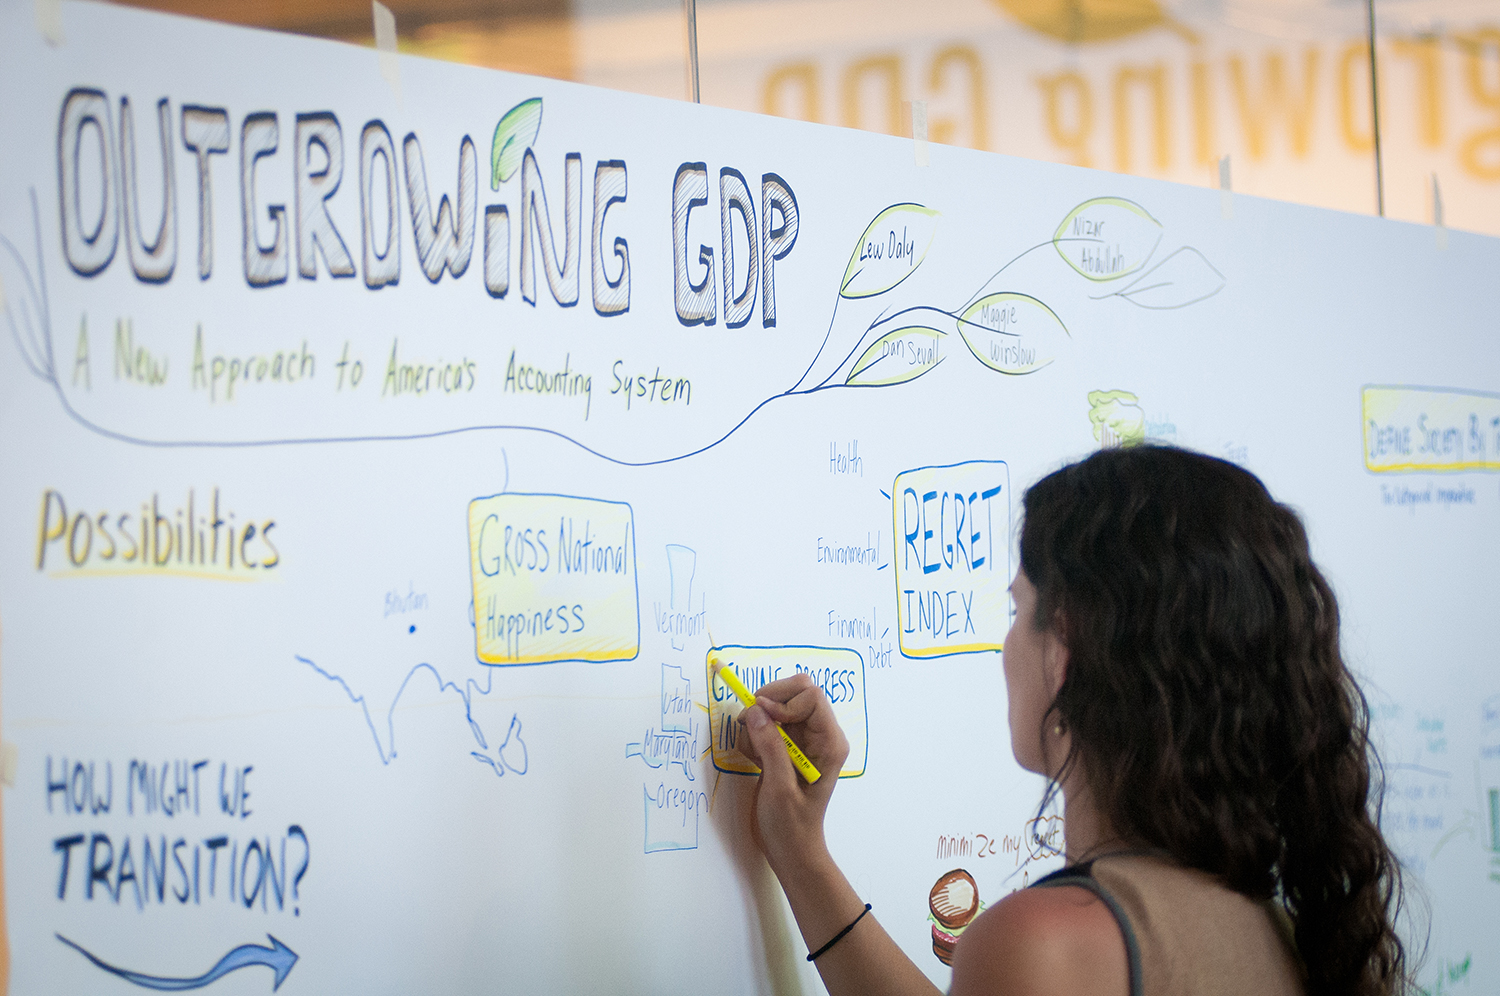 OUTGROWING GDP
A New Approach to America's Accounting System
Lew Daly
Dan Sevall
Maggie
Winslow
Nizar
Abdullah
growing GDP
Possibilities
Bhutan
GROSS National
Happiness
Vermont
Utah
Maryland
Oregon
GENUINE PROGRESS
IN
Health
Environmental
Financial
Debt
REGRET
INDEX
DEFINE SOCIETY BY T
HOW MIGHT WE
TRANSITION?
minimize my
regret